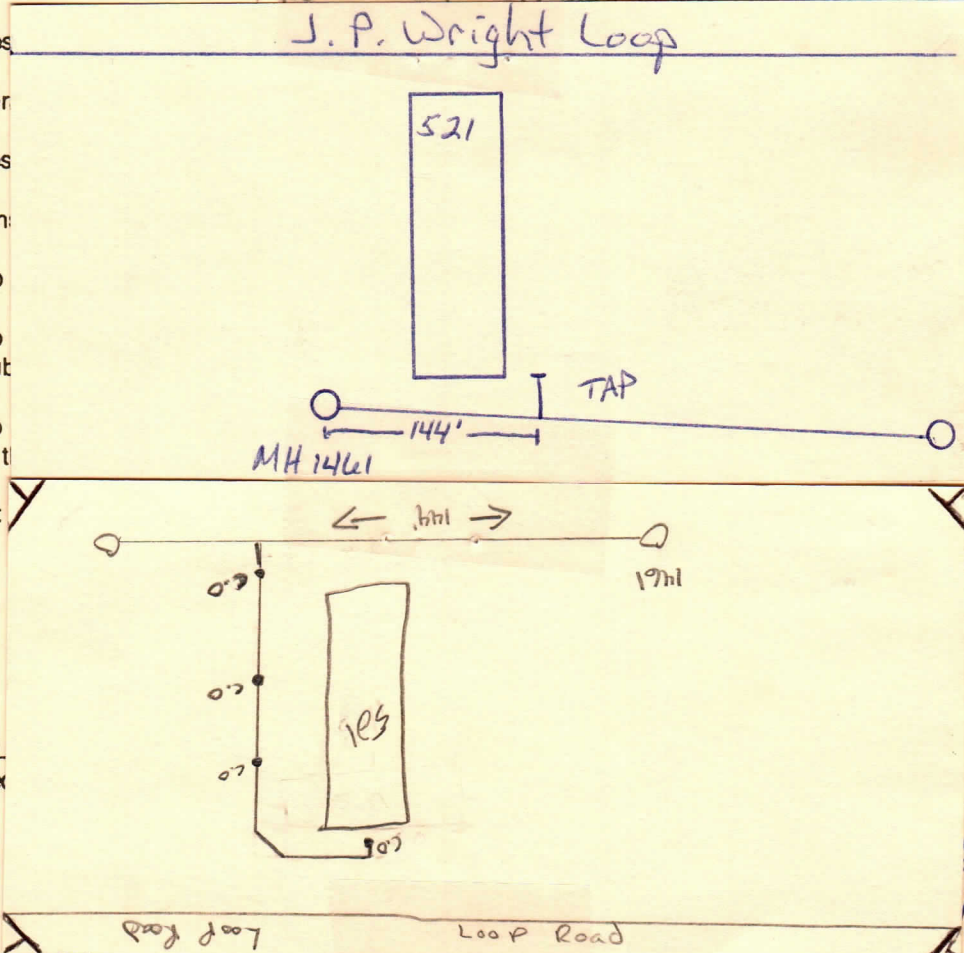 J. P. Wright Loop
521
TAP
144'
MH 1461
144'
1461
C.O
C.O
521
C.O
C.O
Loop Road
Loop Road